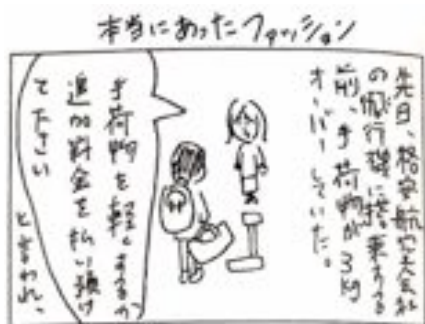 本当にあったファッション
先日、格安航空会社
の飛行機に搭乗する
前、手荷物が3kg
オーバーしていた。
手荷物を軽くするか
追加料金を払い預け
て下さい
と言われ、